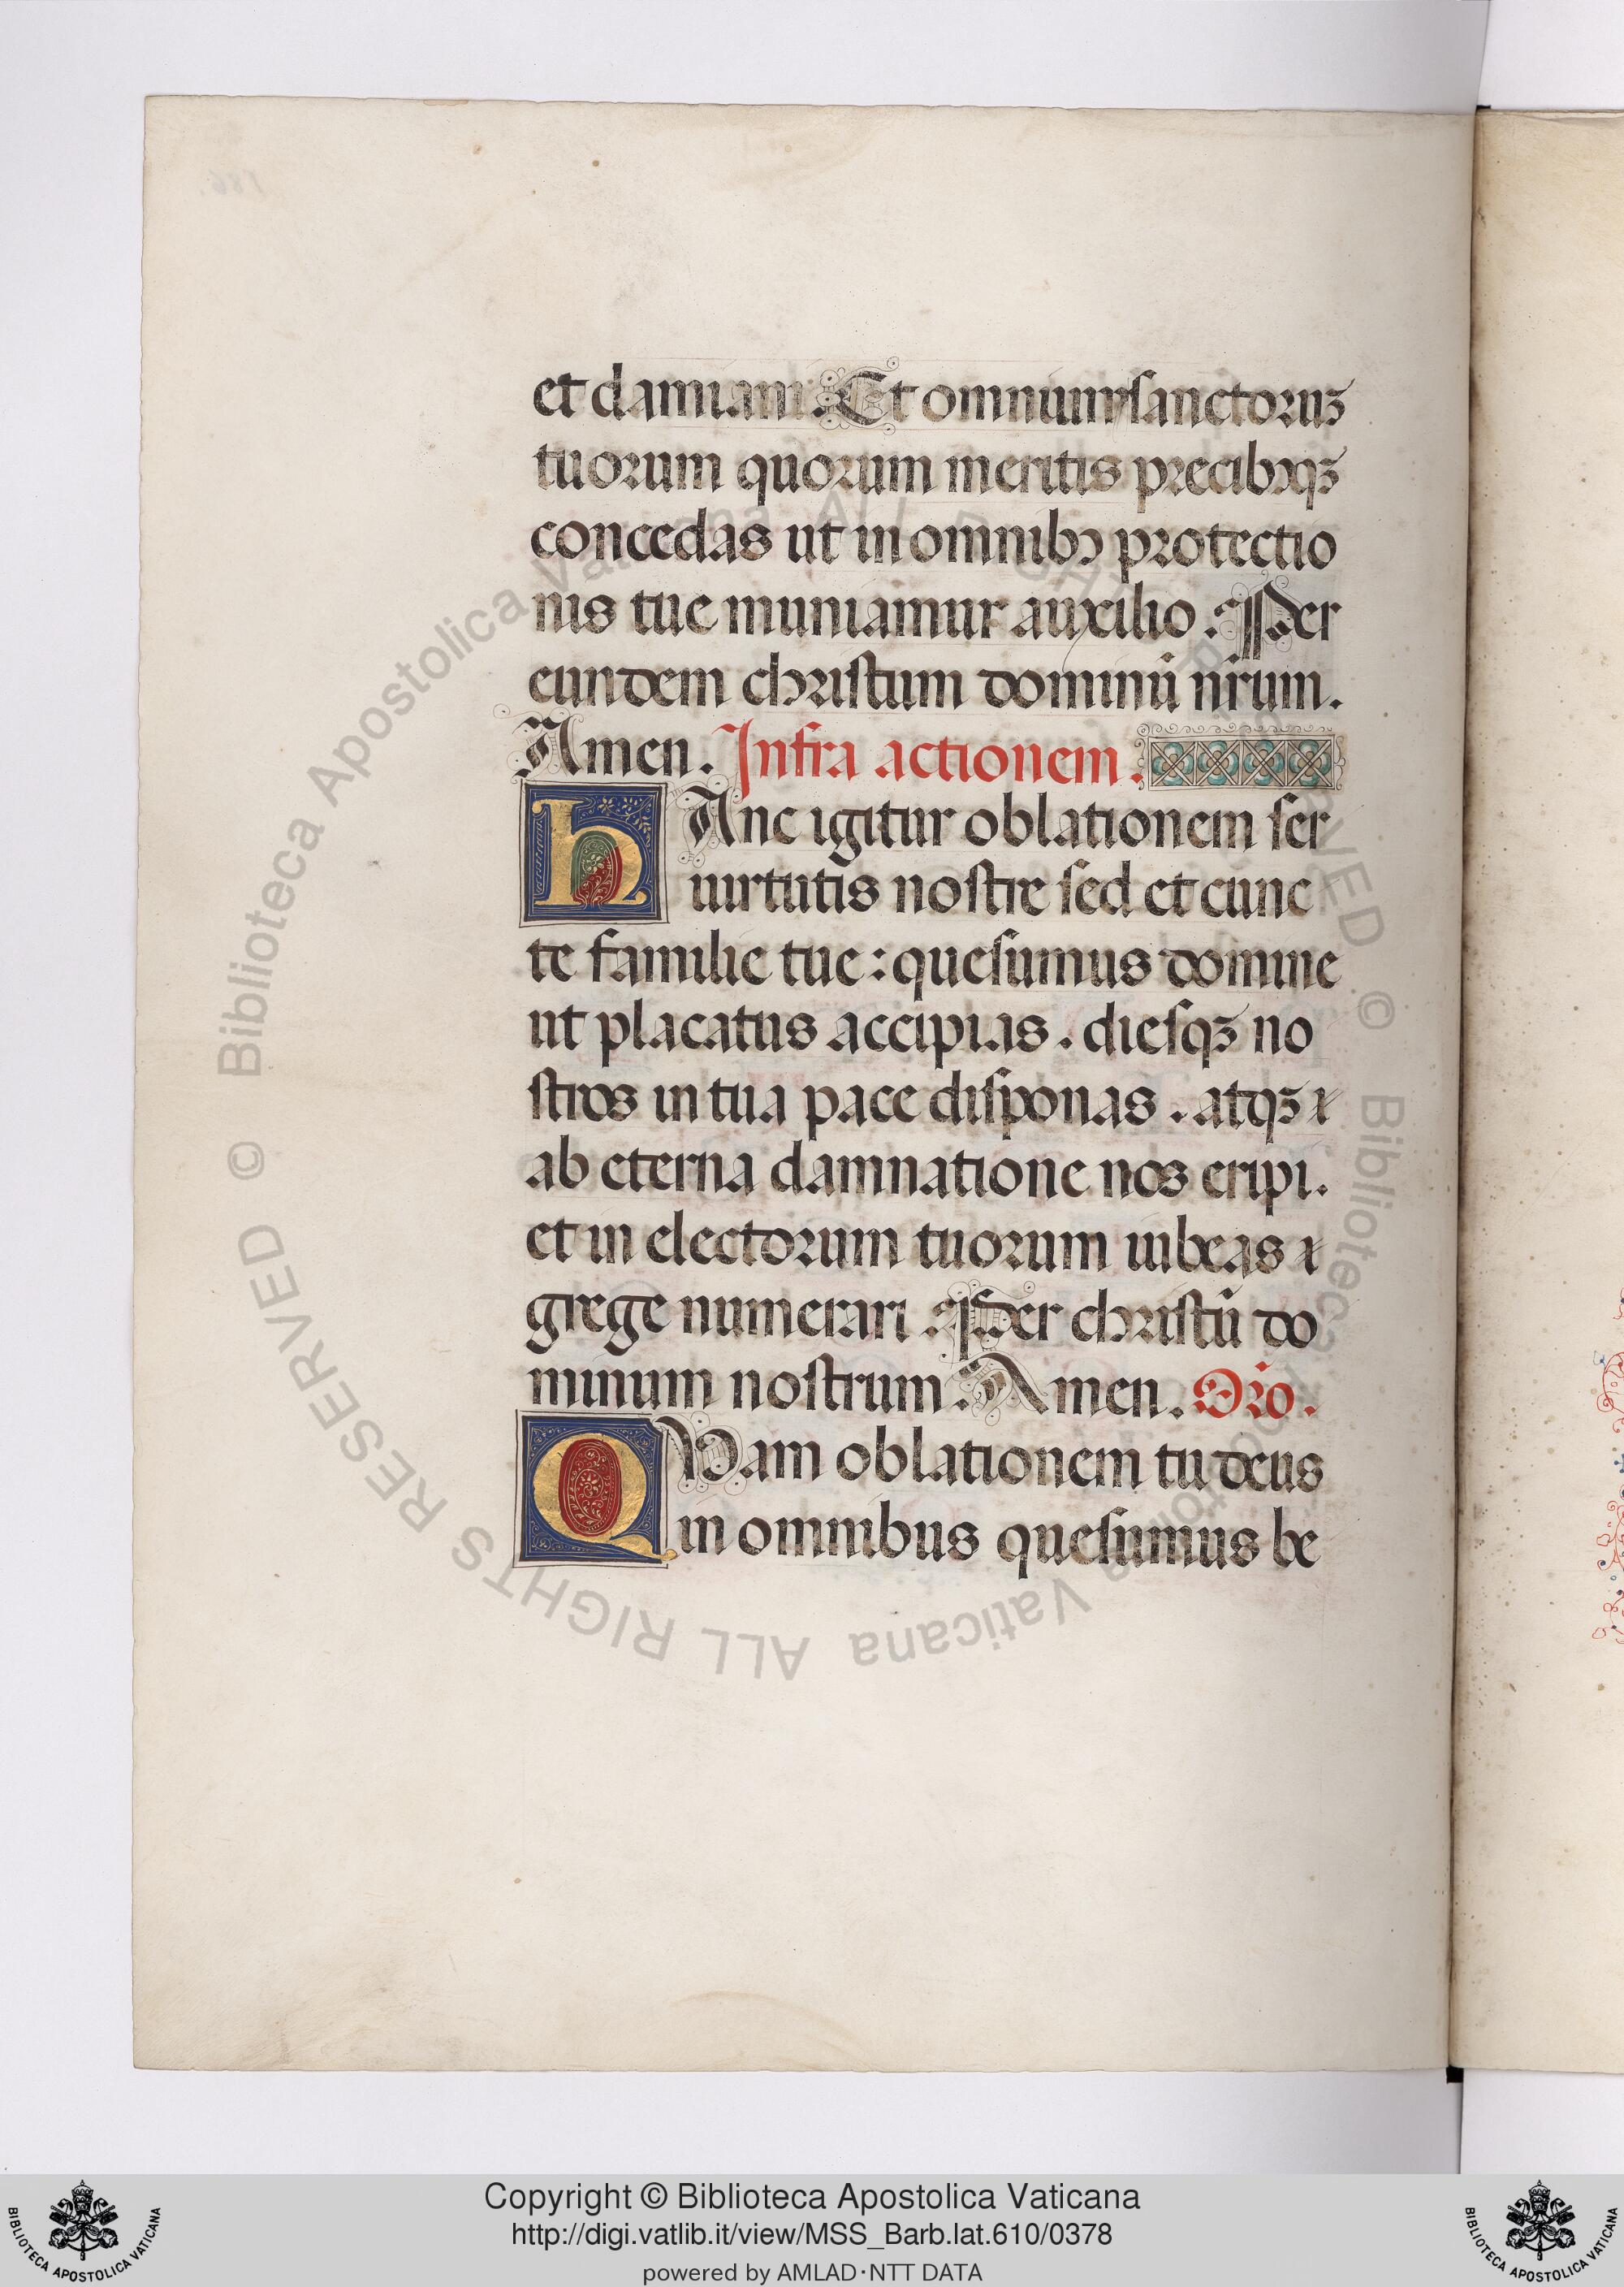 et damiam. Et omnium sanctoruꝫ
tuorum quorum meritis precibꝰqꝫ
concedas ut in omnibꝰ protectio
nis tue muniamur auxilio. Per
eundem christum dominū nr̄um.
Amen. Infra actionem.
HAnc igitur oblationem ser
uirtutis nostre sed et cunc
te familie tue: quesumus domine
ut placatus accipias. diesqꝫ no
stros in tua pace disponas. atqꝫ
ab eterna damnatione nos eripi.
et in electorum tuorum iubeas
grege numerari. Per christū do
minum nostrum. Amen. Or̄o.
QVam oblationem tu deus
in omnibus quesumus be
© Biblioteca Apostolica Vaticana ALL RIGHTS RESERVED © Biblioteca Apostolica Vaticana ALL RIGHTS RESERVED
Copyright © Biblioteca Apostolica Vaticana
http://digi.vatlib.it/view/MSS_Barb.lat.610/0378
powered by AMLAD·NTT DATA
BIBLIOTECA APOSTOLICA VATICANA
BIBLIOTECA APOSTOLICA VATICANA